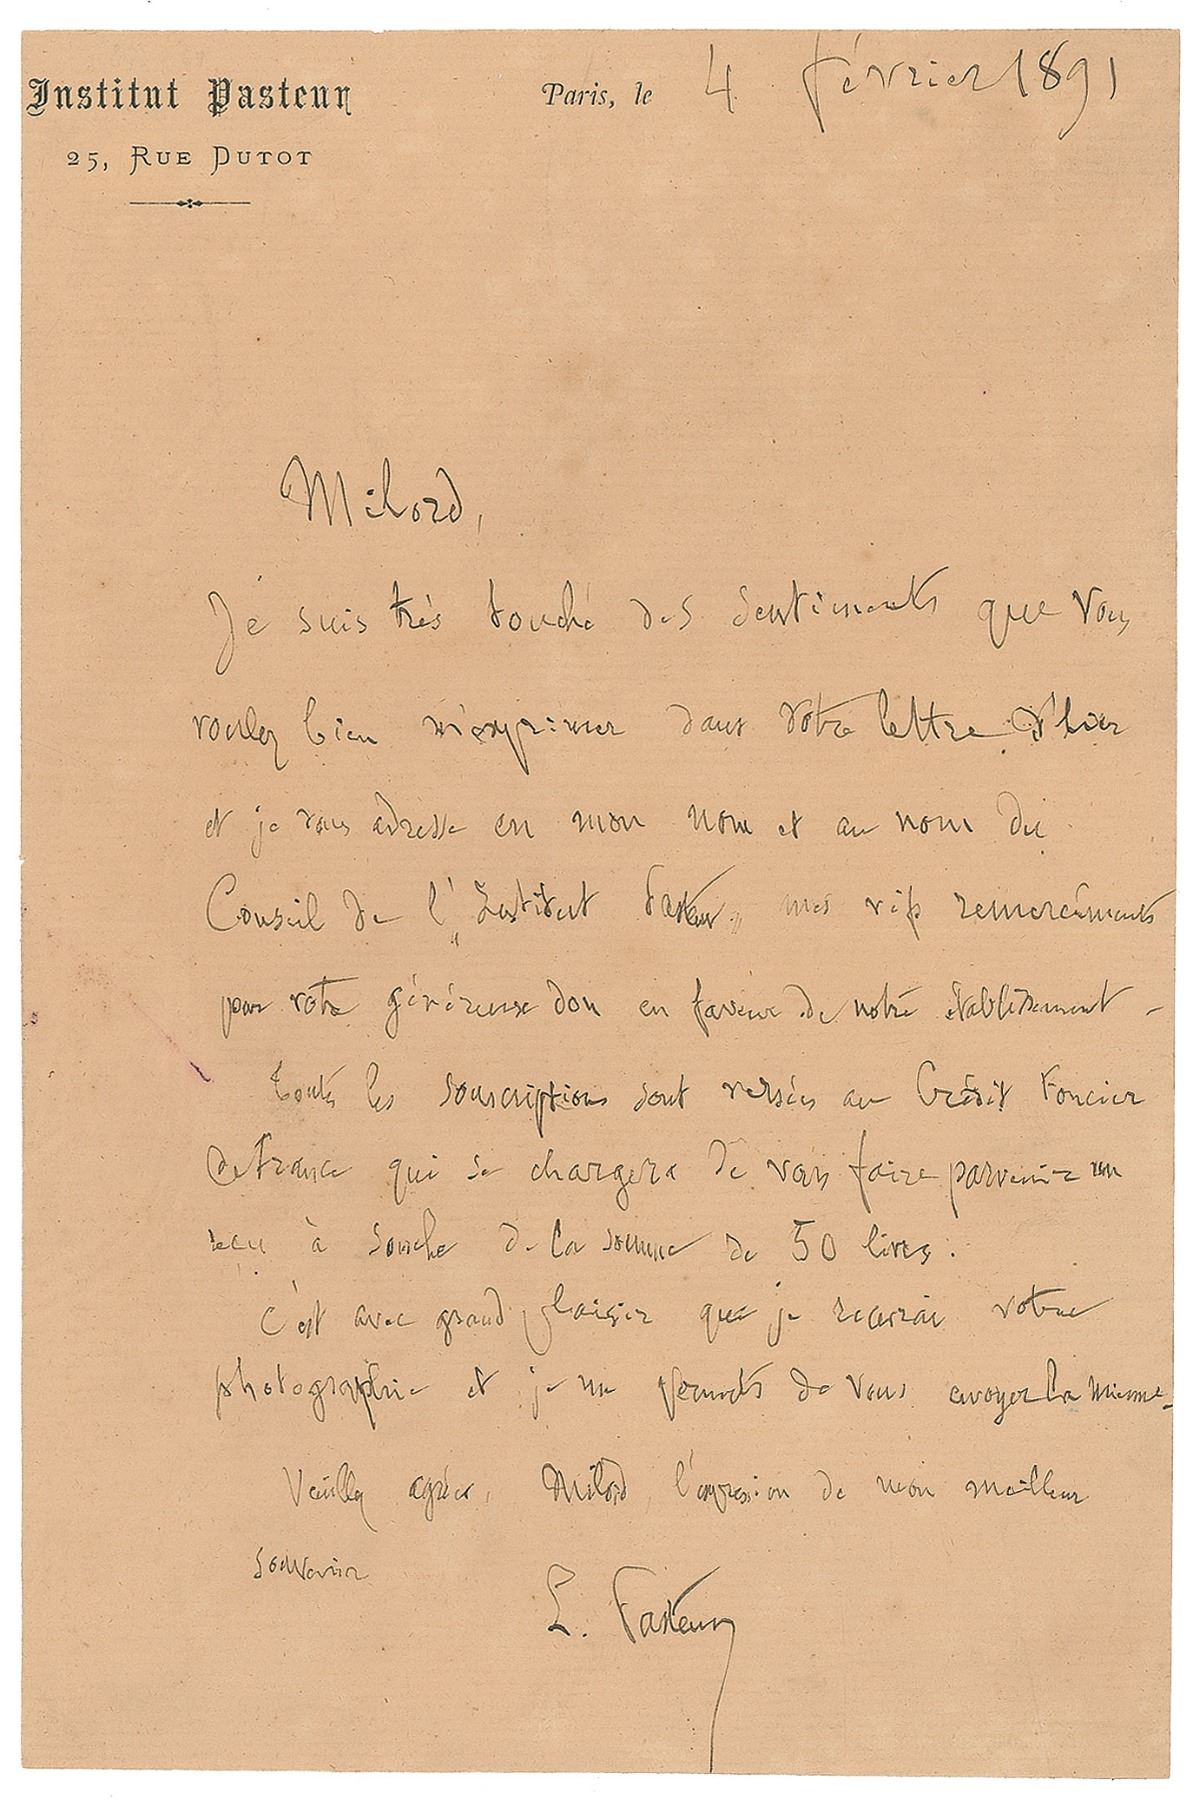 Institut Pasteur
25, Rue Dutot
Paris, le 4 février 1891
Milord,
Je suis très touché des sentiments que vous
voulez bien m'exprimer dans votre lettre d'hier
et je vous adresse en mon nom et au nom du
Conseil de l'"Institut Pasteur" mes vifs remerciements
pour votre généreux don en faveur de notre établissement -
Toutes les souscriptions sont versées au Crédit Foncier
de France qui se chargera de vous faire parvenir un
reçu à souche de la somme de 50 livres.
C'est avec grand plaisir que je recevrai votre
photographie et je me permets de vous envoyer la mienne -
Veuillez agréer, Milord, l'expression de mon meilleur
souvenir
L. Pasteur